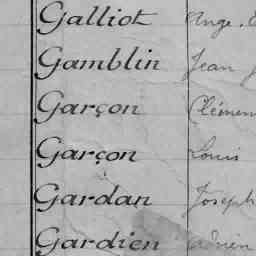 Galliot Ange
Gamblin Jean
Garçon
Garçon Louis
Gardan Joseph
Gardien